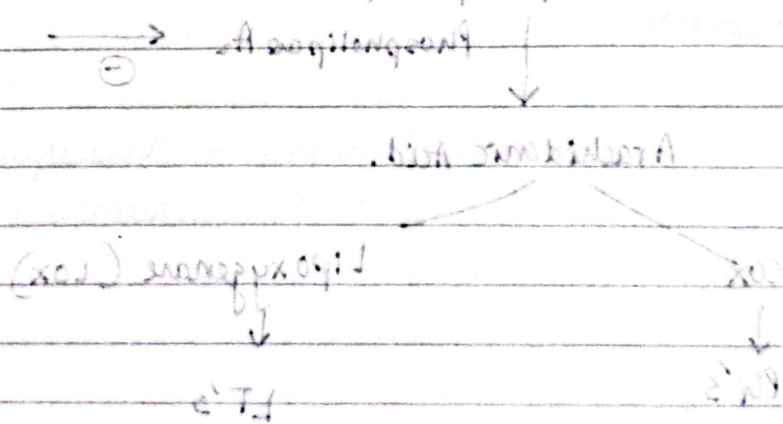 Phospholipase A₂
⊖
Arachidonic Acid.
COX Lipoxygenase (LOX)
PG's LT's